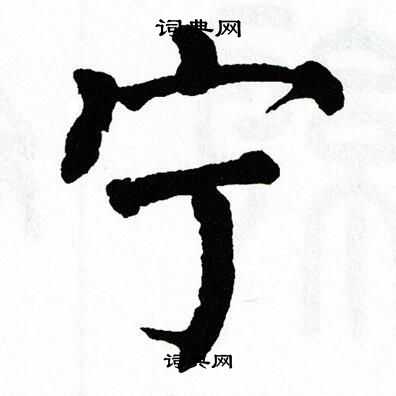 词典网
宁
词典网